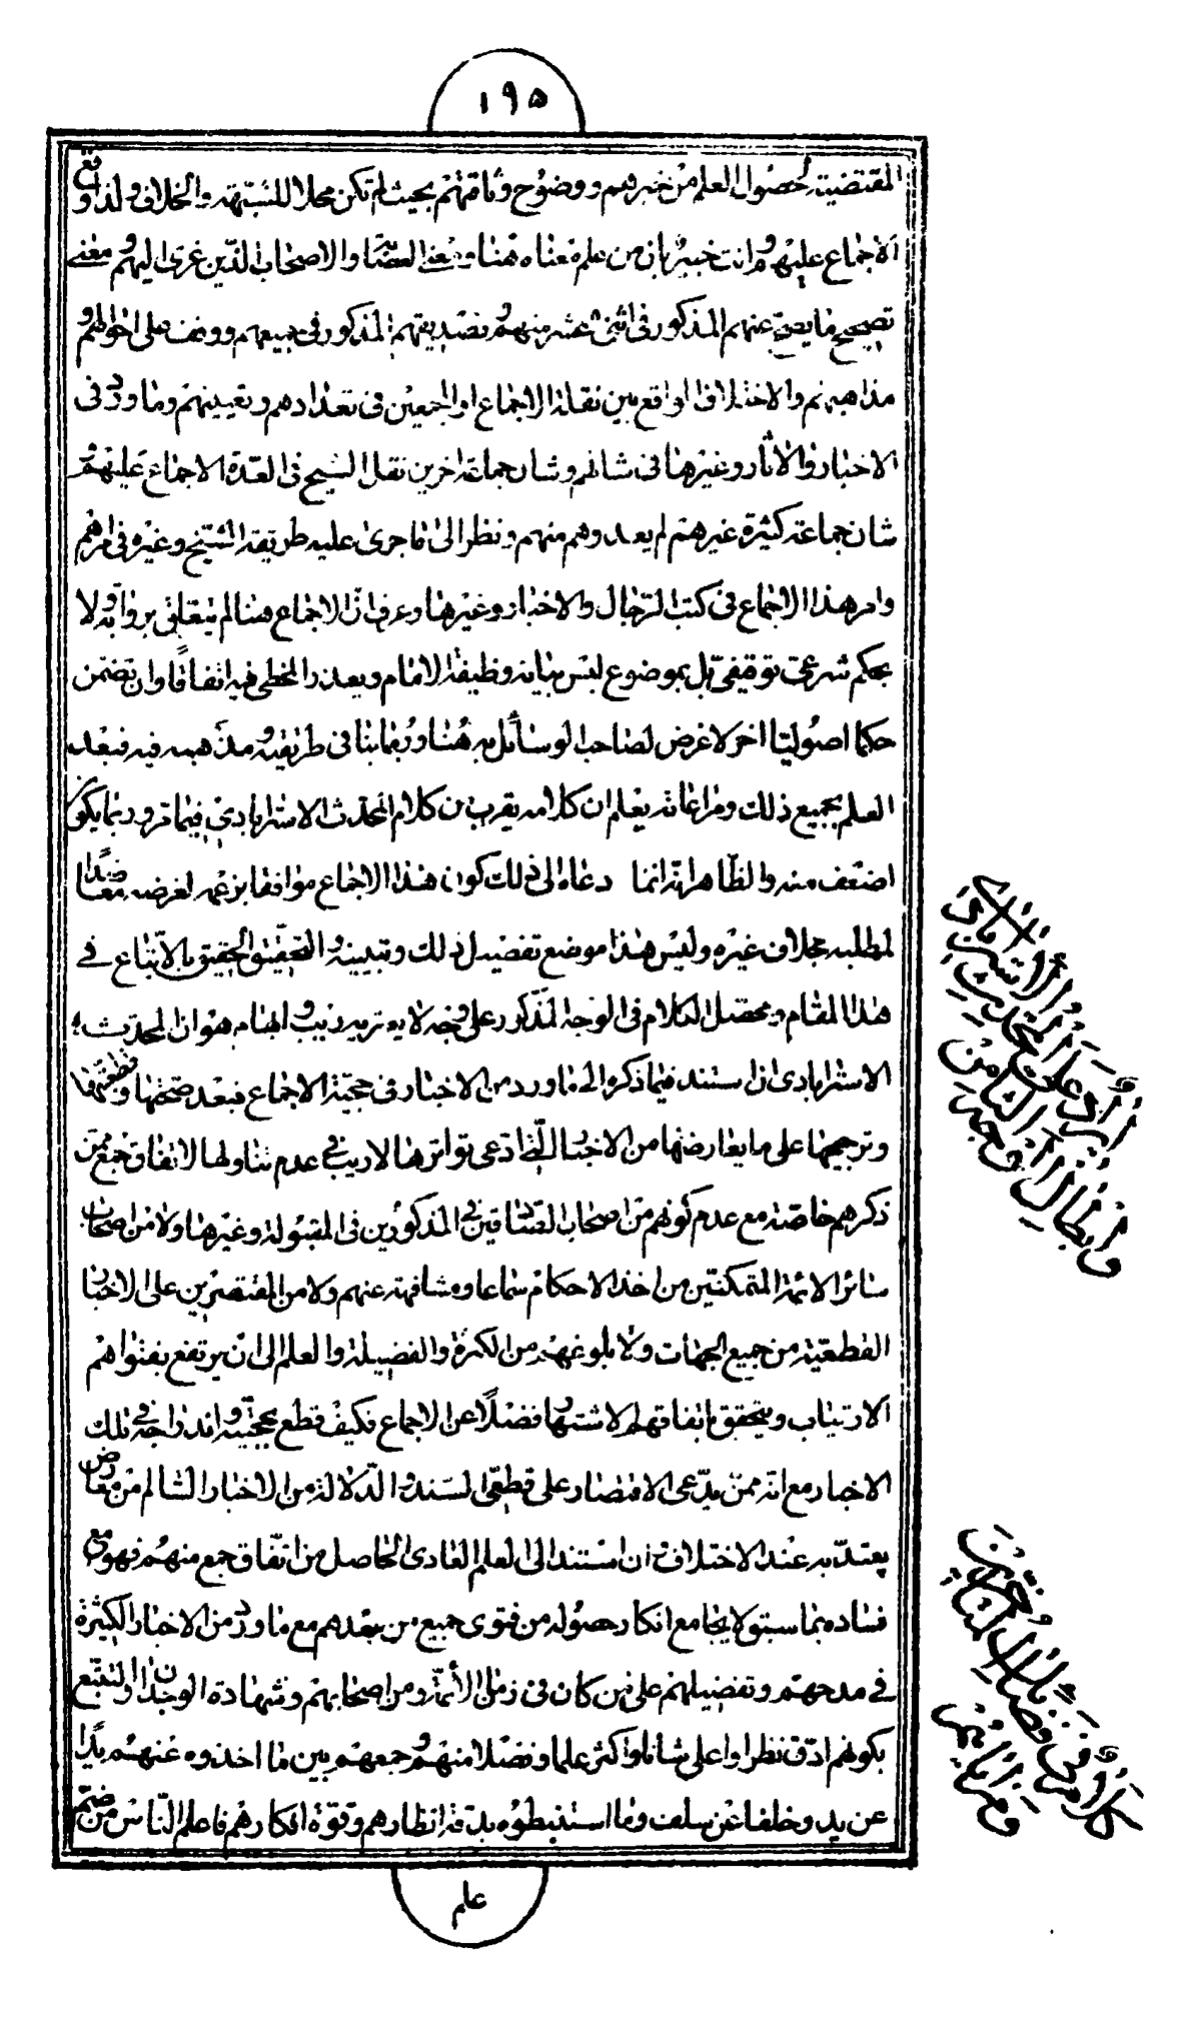 ١٩٥
المقتضية لحصول العلم من خبرهم ووضوح وثاقتهم بحيث لم تكن محلا للشبهة والخلاف ولذا وقع
الاجماع عليهم وانت خبير بان من علم معناه هنا ومعنى العصابة والاصحاب الذين عزى اليهم ومعنى
تصحيح ما يصح عنهم المذكور في اثنى عشر منهم وتصديقهم المذكور في جميعهم ووقف على احوالهم و
مذاهبهم والاختلاف الواقع بين نقلة الاجماع او المجمعين في تعدادهم وتعيينهم وما ورد في
الاخبار والاثار وغيرها في شانهم وشان جماعة اخرين نقل الشيخ في العدة الاجماع عليهم و
شان جماعة كثيرة غيرهم لم يعدوهم منهم ونظر الى ما جرى عليه طريقة الشيخ وغيره في امرهم
وامر هذا الاجماع في كتب الرجال والاخبار وغيرها وعرف ان الاجماع هنا لم يتعلق برواية ولا
بحكم شرعي توقيفي بل بموضوع ليس بيانه وظيفة الامام ويعذر المخطى فيه اتفاقا وان تضمن
حكما اصوليا اخر لا غرض لصاحب الوسائل به هنا وربما ينافي طريقته ومذهبه فيه فبعد
العلم بجميع ذلك ومراعاته يعلم ان كلامه يقرب من كلام المحدث الاسترابادي فيما مر وربما يكون
اضعف منه والظاهر انه انما دعاه الى ذلك كون هذا الاجماع موافقا بزعمه لغرضه معاضدا
لمطلبه بخلاف غيره وليس هذا موضع تفصيل ذلك وتبيينه والتحقيق الحقيق بالاتباع في
هذا المقام ومحصل الكلام في الوجه المذكور على وجه لا يعتريه ريب وابهام هو ان المحدث
الاسترابادي ان استند فيما ذكر والى ما ورد من الاخبار في حجية الاجماع فبعد صحتها وقطعيتها
وترجيحها على ما يعارضها من الاخبار التي ادعى تواترها لا ريب في عدم تناولها لاتفاق جمع ممن
ذكرهم خاصة مع عدم كونهم من اصحاب الصادقين المذكورين في المقبولة وغيرها ولا من اصحاب
سائر الائمة المتمكنين من اخذ الاحكام سماعا ومشافهة عنهم ولا من المقتصرين على الاخبار
القطعية من جميع الجهات ولا بلوغهم من الكثرة والفضيلة والعلم الى ان يرتفع بفتواهم
الارتياب ويتحقق باتفاقهم الاشتهار فضلا عن الاجماع فكيف قطع بحجيته واندراجه في تلك
الاخبار مع انه ممن يدعى الاقتصار على قطعى السند والدلالة من الاخبار السالم من معارض
يعتد به عند الاختلاف وان استند الى العلم العادى الحاصل من اتفاق جمع منهم فهو مع
فساده بما سبق لا يجامع انكار حصوله من فتوى جميع من بعدهم مع ما ورد من الاخبار الكثيرة
في مدحهم وتفضيلهم على من كان في زمان الأئمة ومن اصحابهم وشهادة الوجدان والتتبع
بكونهم ادق نظرا واعلى شانا واكثر علما وفضلا منهم وجمعهم بين ما اخذوه عنهم يدا
عن يد وخلفا عن سلف وما استنبطوه بدقة انظارهم وقوة افكارهم فاعلم الناس من ضم
علم
ايراد على المحدث الاسترابادى
وابطال الثامن
كلام في فضل المتاخرين
ومزاياهم